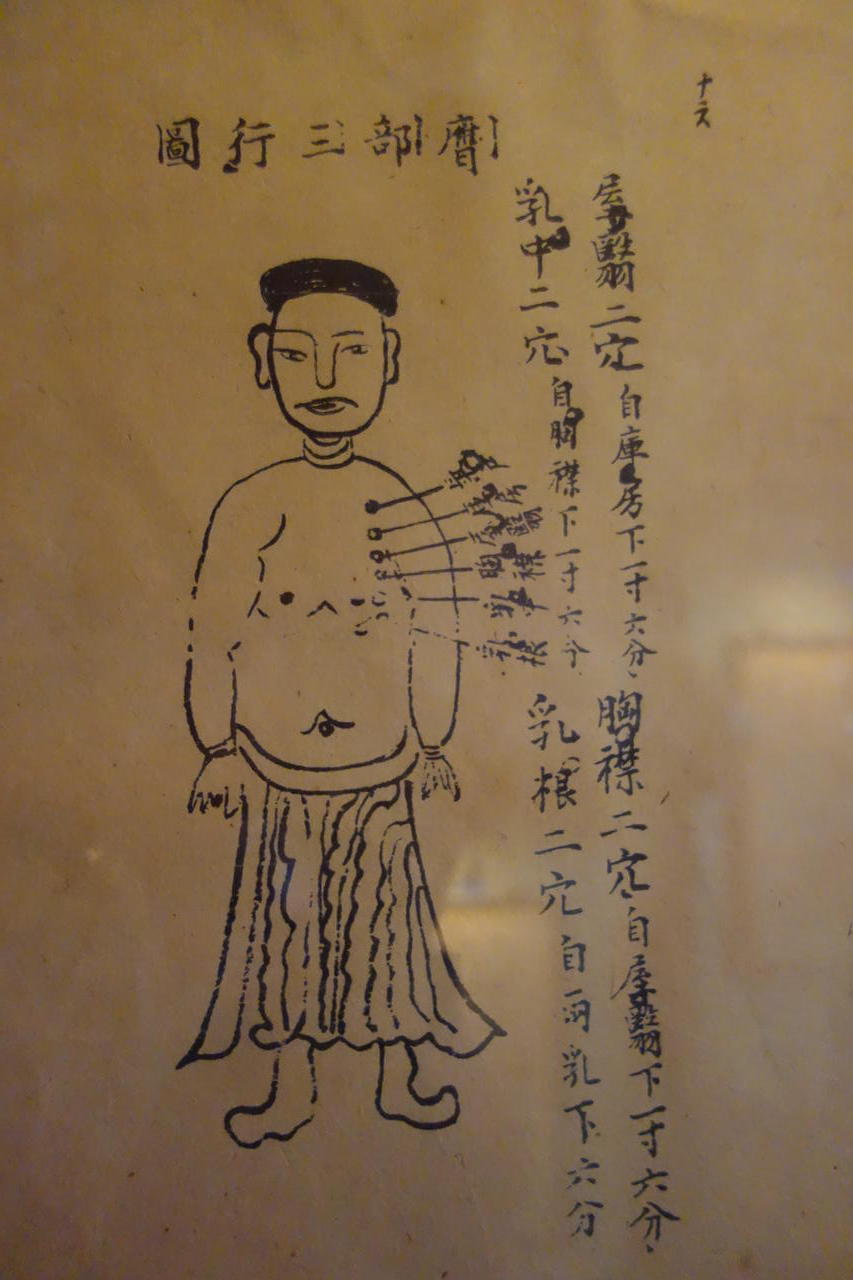 十六
膺部三行圖
屋翳二穴 自庫房下一寸六分、 胸襟二穴、自屋翳下一寸六分、
乳中二穴 自胸襟下一寸六分 乳根二穴 自兩乳下六分
屋翳
胸襟
乳中
乳根